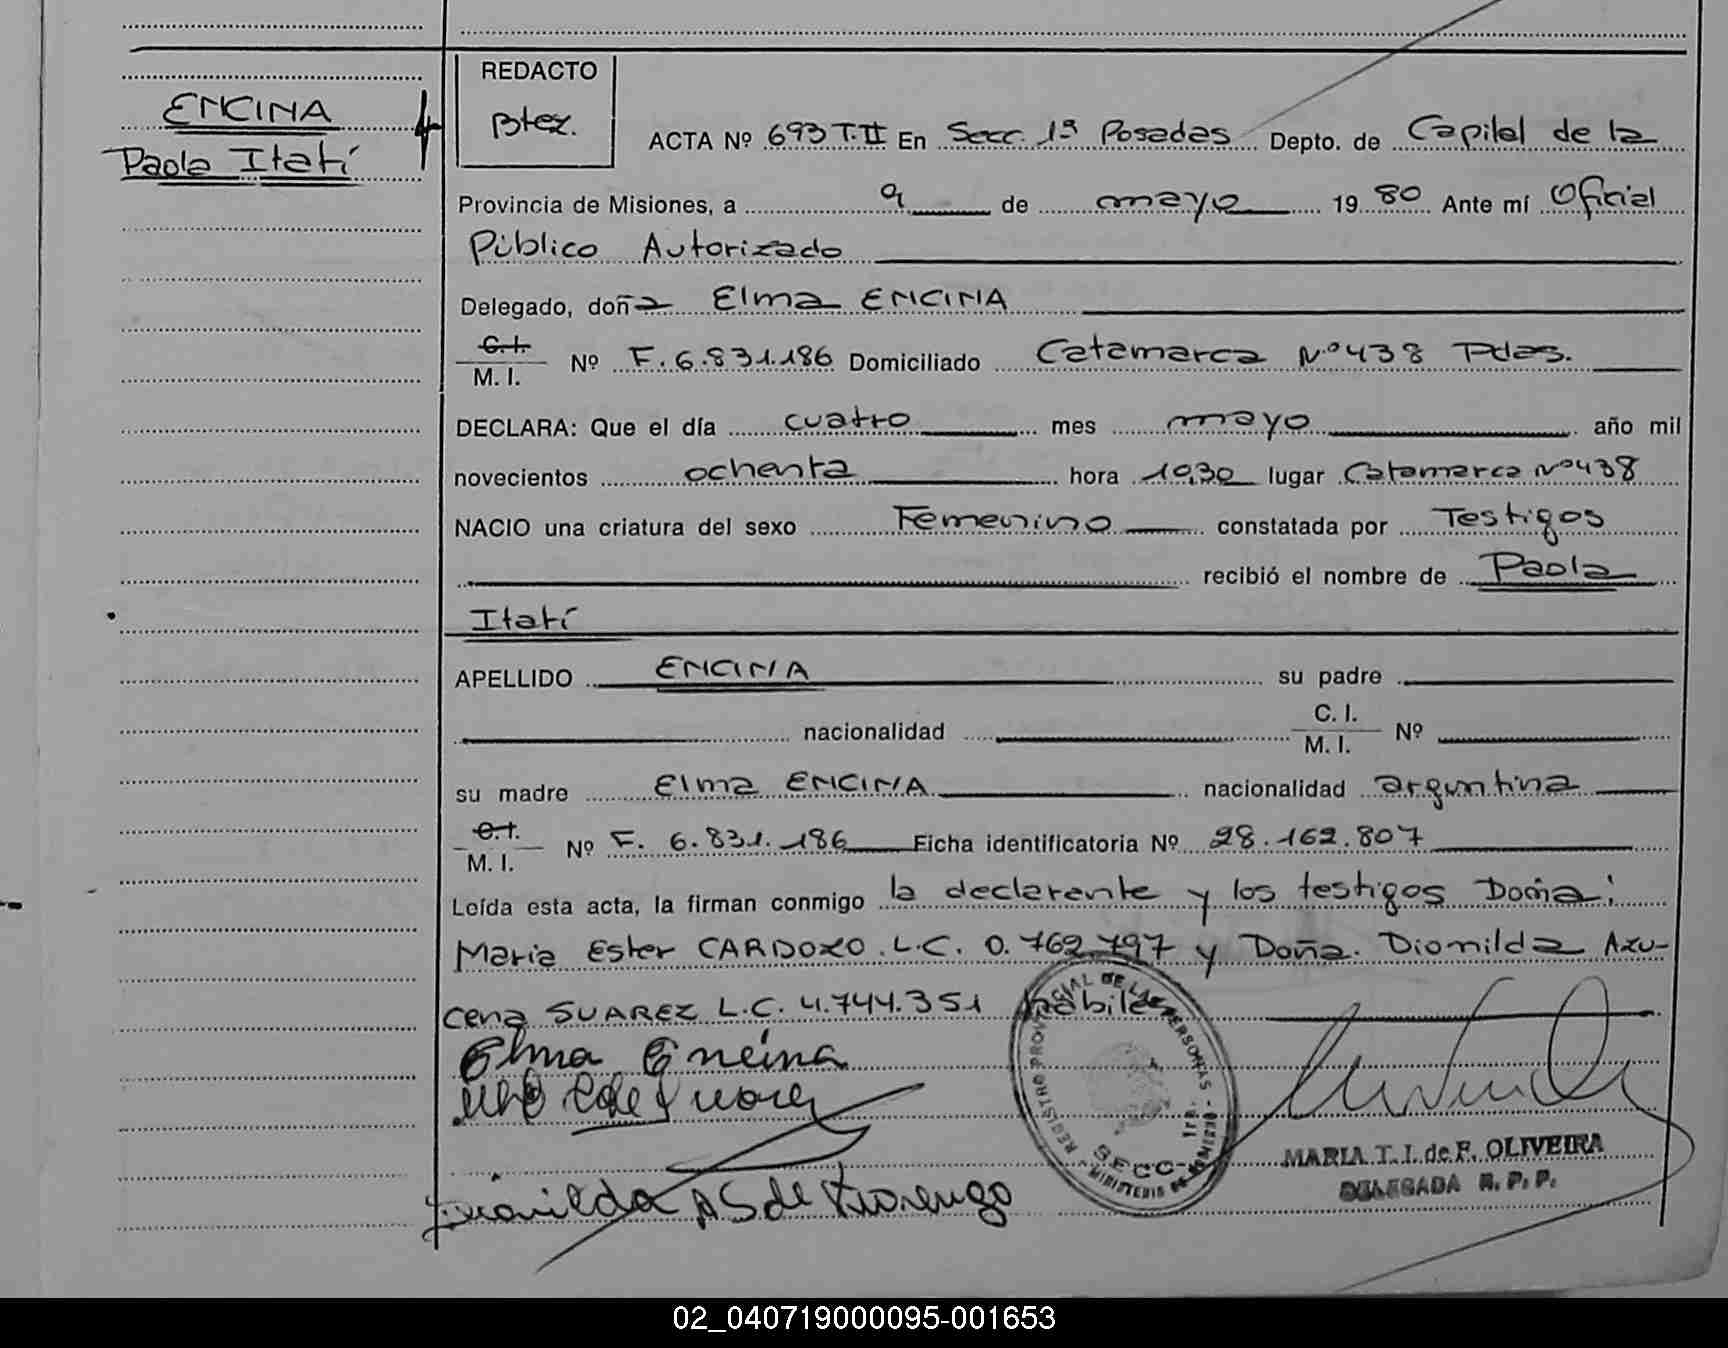 ENCINA
Paola Itatí
REDACTO
Btez.
ACTA Nº 693 T.II En Secc. 1ª Posadas Depto. de Capital de la
Provincia de Misiones, a 9 de mayo 1980 Ante mí Oficial
Público Autorizado
Delegado, doña Elma ENCINA
C.I.
M. I. Nº F. 6.831.186 Domiciliado Catamarca Nº 438 Pdas.
DECLARA: Que el día cuatro mes mayo año mil
novecientos ochenta hora 10,30 lugar Catamarca Nº 438
NACIO una criatura del sexo Femenino constatada por Testigos
recibió el nombre de Paola
Itatí
APELLIDO ENCINA su padre
nacionalidad C. I.
M. I. Nº
su madre Elma ENCINA nacionalidad argentina
C.I.
M. I. Nº F. 6.831.186 Ficha identificatoria Nº 28.162.807
Leída esta acta, la firman conmigo la declarante y los testigos Doña:
Maria Ester CARDOZO. L.C. 0.762.797 y Doña. Dionilda Azu-
cena SUAREZ L.C. 4.744.351 hábiles
Elma Encina
REGISTRO PROVINCIAL DE LAS PERSONAS
SECC. 1ra.
MINISTERIO DE GOBIERNO
MARIA T. I. de F. OLIVEIRA
DELEGADA R. P. P.
02_040719000095-001653